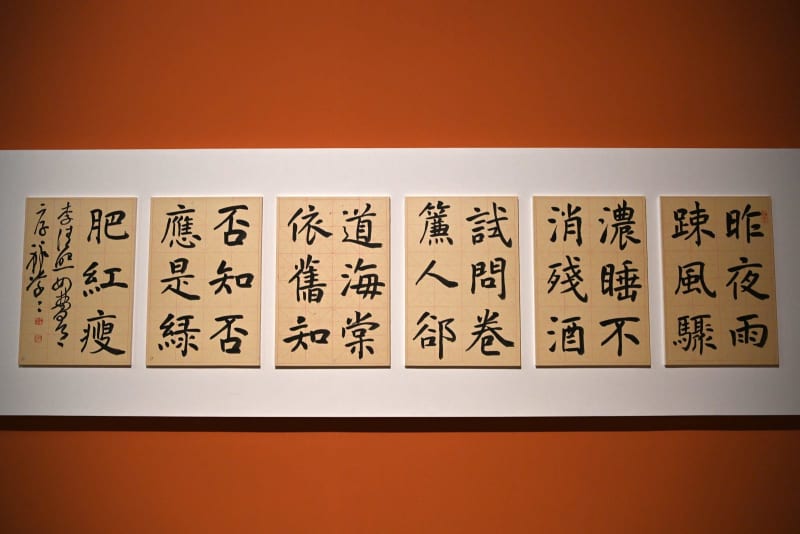 昨夜雨
踈風驟
濃睡不
消殘酒
試問卷
簾人卻
道海棠
依舊知
否知否
應是綠
肥紅瘦
李清照如夢令